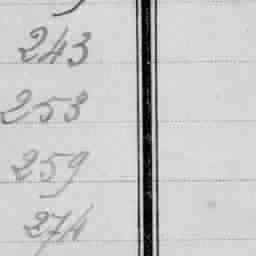 243
253
259
274